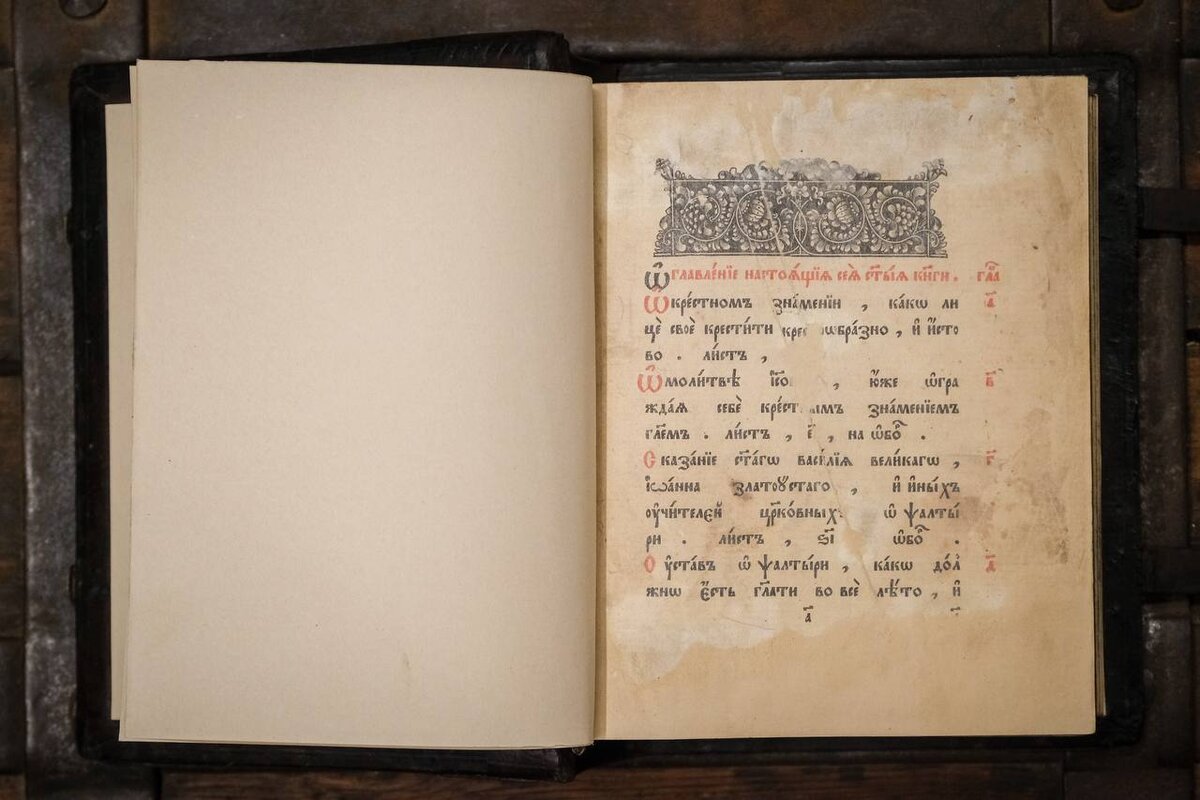 Ѡглавле́нїе настоѧ́щїѧ сеѧ̀ ст҃ы́ѧ кни́ги . гла҃
Ѡ кре́стномъ зна́менїи , ка́кѡ ли а҃
цѐ своѐ крести́ти ѡбра́зно , и҆ и҆́сто
во . ли́стъ ,
Ѡ моли́твѣ , ю҆́же ѡ҆гра в҃
жда́ѧ себѐ зна́менїемъ
гл҃емъ . ли́стъ , є҃ , на ѡ҆бо .
Сказа́нїе ст҃а́гѡ васи́лїѧ вели́кагѡ , г҃
і҆ѡа́нна златоꙋ́стаго , и҆ и҆ны́хъ
ᲂу҆чи́телей цр҃ко́вныхъ ѡ҆ ѱалты́
ри . ли́стъ , ѕ҃і ѡ҆бо .
Оу҆ста́въ ѡ҆ ѱалты́ри , ка́кѡ до́л д҃
жнѡ є҆́сть гл҃ати во всѐ лѣ́то , и҆
а҃